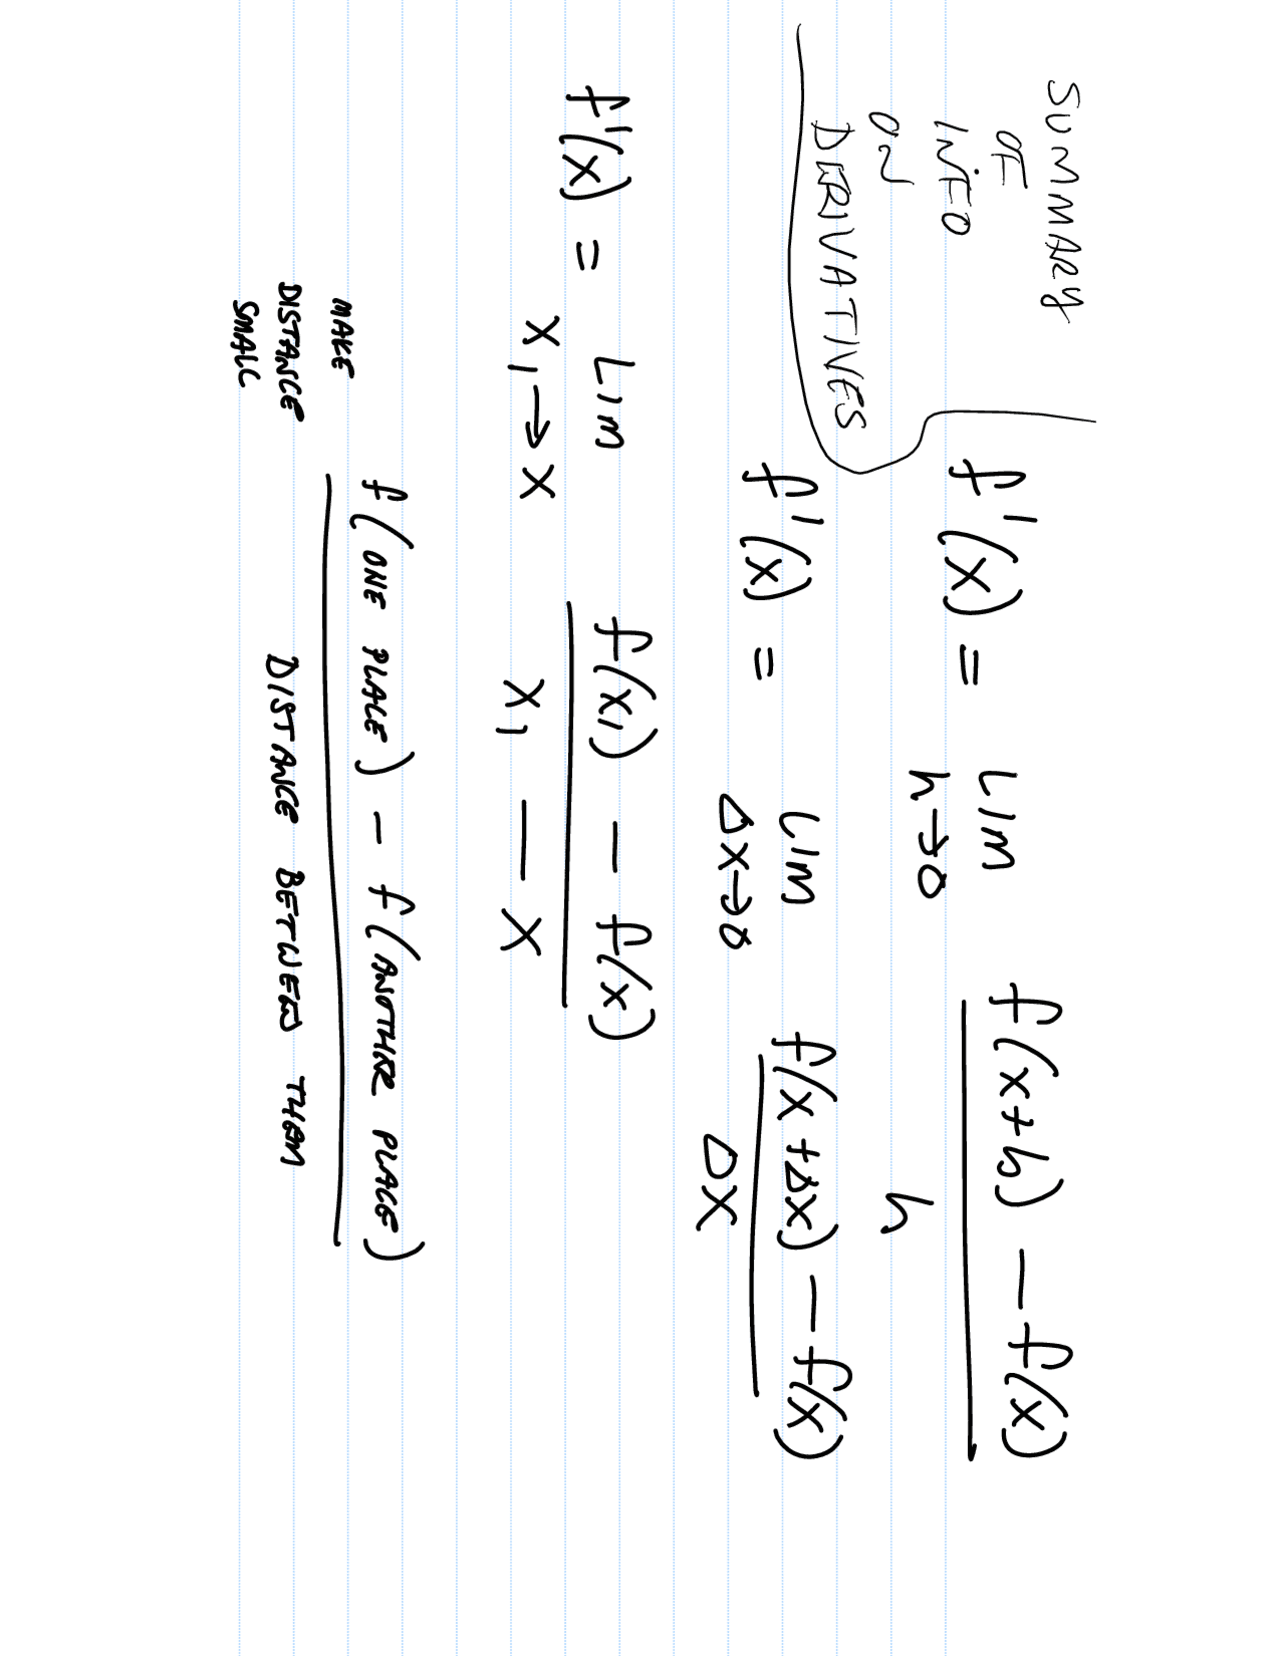 SUMMARY
OF
INFO
ON
DERIVATIVES
f'(x) = LIM h→0 f(x+h) − f(x) / h
f'(x) = LIM Δx→0 f(x+Δx) − f(x) / Δx
f'(x) = LIM x₁→x f(x₁) − f(x) / x₁ − x
MAKE
DISTANCE
SMALL
f(ONE PLACE) − f(ANOTHER PLACE)
DISTANCE BETWEEN THEM